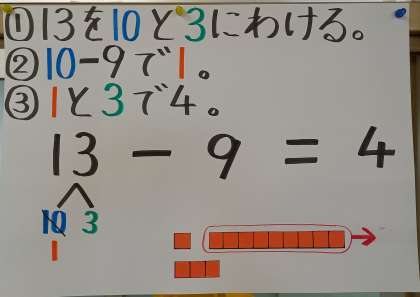 ①13を10と3にわける。
②10-9で1。
③1と3で4。
13 - 9 = 4
10 3
1